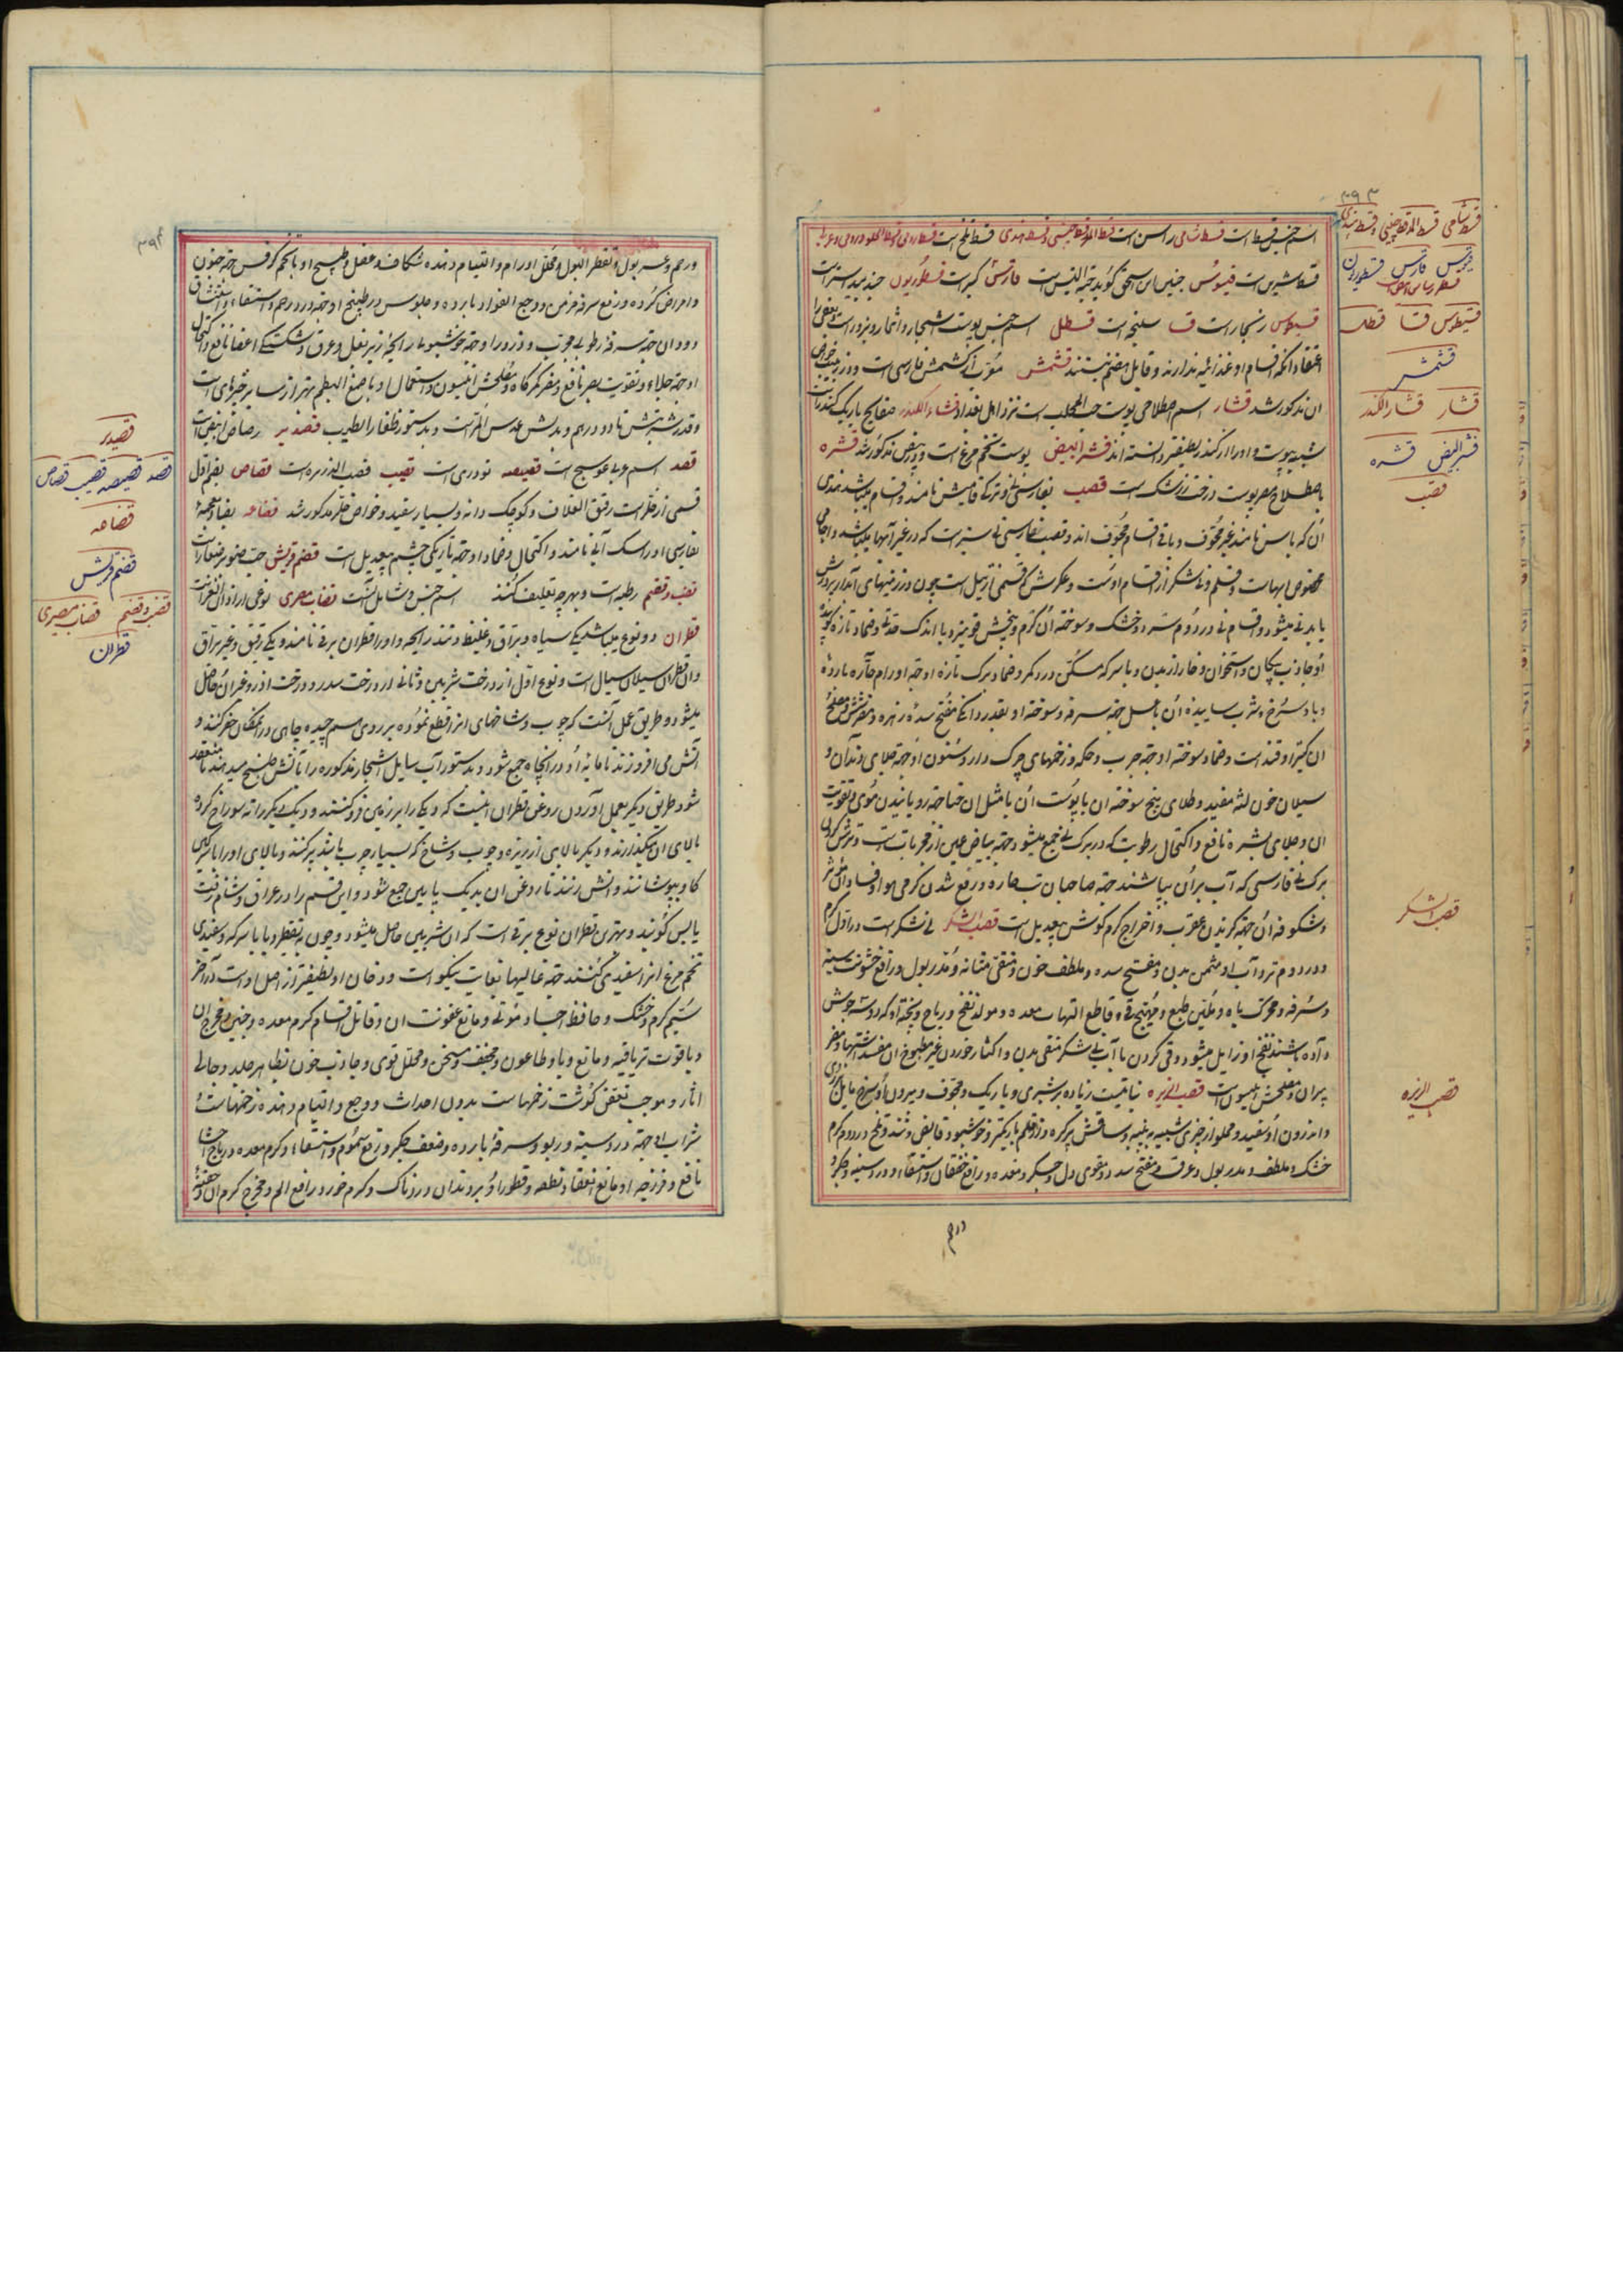 ۳۹۳
اسم جنس قسط است قسط شامی راسن است قسط المر قسط چینی و قسط هندی قسط تلخ است
قسط شیرین است قیسوس جنیس ابن اسحق گوید حبة النیس است قارس کبر است قسطوریون جندبیدستر است
قسیطوس زنجار است قسا سلیخه است قسطل اسم جنس پوست اشجار و اثمار و بزور است و بعضی را
اعتقاد آنکه اقسام او غذائیه ندارند و قابل هضم نیستند قشمش معرب از کشمش فارسی است و در زبیب خواص
ان مذکور شد قشار اسم اصطلاحی پوست حب المحلب است نزد اهل بغداد قشار الکندر صفایح باریک کندر است
شبیه بپوست و او را از کندر لطیفتر دانسته‌اند قشر البیض پوست تخم مرغ است و در بیض مذکور شد قشره
باصطلاح مصر پوست درخت زرشک است قصب بفارسی نی و بترکی قامیش نامند و اقسام میباشد هندی
آن که بانس نامند غیر مجوف و باقی اقسام مجوف اند و قصب فارسی نی سبز است که در غیر آبها میباشد و اجامی
مخصوص آبهاست و قلم و نی شکر از اقسام اوست و عکرش که قسمی از ثیل است چون در زمینهای آبدار پرورش
یابد نی میشود و اقسام نی در دوم سرد و خشک و سوخته آن گرم و بیخش قویتر و با اندک حدتی و ضماد تازه کوبیده
او جاذب پیکان و استخوان و خار از بدن و با سرکه مسکن درد کمر و ضماد برک تازه او جهة اورام حاره بارده
و باد سرخ و شرب ساییده آن با عسل جهة سرفه و سوخته او بقدر دانگی مفتح سده زهره و مضر شش و مصلح
ان کتیرا و قند است و ضماد سوخته او جهة جرب و حکه و زخمهای چرک دار و سنون او جهة جلای دندان و
سیلان خون لثه مفید و طلای بیخ سوخته ان با پوست آن با مثل ان حنا جهة رویانیدن موی و تقویت
ان و جلای بشره نافع و اکتحال رطوبت که در برک نی جمع میشود جهة بیاض عین از مجربات است و فرش کردن
برک نی فارسی که آب بر آن بپاشند جهة صاحبان تب حاره و رفع شدن گرمی هوا و فساد آن مؤثر
و شکوفه آن جهة گزیدن عقرب و اخراج کرم گوش بیعدیل است قصب السکر نی شکر است در اول گرم
و در دوم تر و آب او مسمن بدن و مفتح سده و ملطف خون و منقی مثانه و مدر بول و رافع خشونت سینه
و سرفه و محرک باه و ملین طبع و مهیج قی و قاطع التهاب معده و مولد نفخ و ریاح و پخته او که دو سه جوش
داده باشند نفخ او زایل میشود و قی کردن با آب نی شکر منقی بدن و اکثار خوردن غیر مطبوخ ان مفسد اشتها و مضر
پیران و مصلحش انیسون است قصب الذریره نباتیست زیاده بر شبری و باریک و مجوف و بیرون او سرخ مایل بزردی
و اندرون او سفید و مملو از چیزی شبیه به پنبه و ساقش پرگره و از قلم باریکتر و خوشبو و قابض و تند و تلخ در دوم گرم
خشک و ملطف و مدر بول و عرق و مفتح سدد و مقوی دل و جگر و معده و رافع خفقان و استسقاء و درد سینه و جگر
درحم
قسط شامی قسط المر قسط چینی و قسط هندی
قیسوس قارس قسطوریون
قسیطوس قسا قسطل
قشمش
قشار قشار الکندر
قشر البیض قشره
قصب
قصب السکر
قصب الذریره
۳۹۴
ورحم و عسر بول و تقطر البول و محلل اورام و التیام دهنده شکاف عضل و طبیخ او با تخم کرفس جهة خون
و امراض گرده و رفع سرفه مزمن و وجع الفؤاد بارده و جلوس در طبیخ او جهة درد رحم و استسقاء و استنشاق
دود ان جهة سرفه رطوبی مجرب و ذرور او جهة خوشبو رایحه زیر بغل و عرق و شکستگی اعضا نافع و اکتحال
او جهة جلاء و تقویت بصر نافع و مضر کمرگاه و مصلحش انیسون و استعمال او با صمغ البطم بهتر از سایر چیزهای است
و قدر شربتش تا دو درهم و بدلش عدس المر است و بدستور ظفار الطیب قصدیر رصاص ابیض است
قصد اسم عربی عوسج است قصیصه تودری است قصیب قصب الذریره است قصاص بضم اول
قسمی از خلر است رقیق الغلاف و کوچک دانه و بسیار سفید و خواص خلر مذکور شد قضاعه بضاد معجمه
بفارسی اوراسک آبی نامند و اکتحال و ضماد او جهة تاریکی چشم بیعدیل است قضم قریش حب صنوبر صغار است
قضب و قضم رطبه است و بهر چه تعلیف کنند اسم جنس و شامل آنست قضاب مصری نوعی از اذان الفار است
قطران دو نوع میباشد یکی سیاه و براق و غلیظ و تند رایحه و او را قطران برقی نامند و یکی رقیق و غیر براق
و آن قطران سیلان سیال است و نوع اول از درخت شربین و ثانی از درخت سدر و درخت ازر و غیر ان حاصل
میشود و طریق عمل آنست که چوب و شاخهای انرا قطع نموده بر روی هم چیده چاهی در انمکان حفر کنند و
آتش می افروزند تا مائیه او در انچاه جمع شود و بدستور آب سایل اشجار مذکوره را تا آتش طبخ میدهند تا منعقد
شود و طریق دیگر بعمل آوردن روغن قطران انیست که دیگ را بر زمین فرو کنند و دیگ دیگر را ته سوراخ کرده
بالای ان بگذارند و دیگر بالایی از ریزه چوب و شاخ که بسیار چرب باشد پر کنند و بالای او را با سرگین
گاو بپوشانند و اتش زنند تا روغن ان بدیگ پایین جمع شود و این قسم را در عراق و شام زفت
یابس گویند و بهترین قطران نوع برقی است که ان شربین حاصل میشود و چون به تقطیر و یا با سرکه و سفیدی
تخم مرغ انرا سفید می کنند جهة غالیها بغایت نیکو است و دخان او لطیفتر از اصل او است در آخر
سیم گرم و خشک و حافظ اجساد موتی و مانع عفونت ان و قاتل اقسام کرم معده و جنین و مخرج ان
و با قوت تریاقیه و مانع وبا و طاعون و مجفف و مسخن و محلل قوی و جاذب خون بظاهر جلد و جالی
اثار و موجب تعفن گوشت زخمهاست بدون احداث و وجع و التیام دهنده زخمهاست و
شراب او جهة درد سینه و ربو و سرفه بارده و ضعف جگر و رفع سموم و استسقاء و کرم معده و ریاح احشا
نافع و فرزجه او مانع انعقاد نطفه و قطور او بر دندان دردناک و کرم خورده رافع الم و مخرج کرم ان و حقنه
قصدیر
قصد قصیصه قصیب قصاص
قضاعه
قضم قریش
قضب و قضم قضاب مصری
قطران